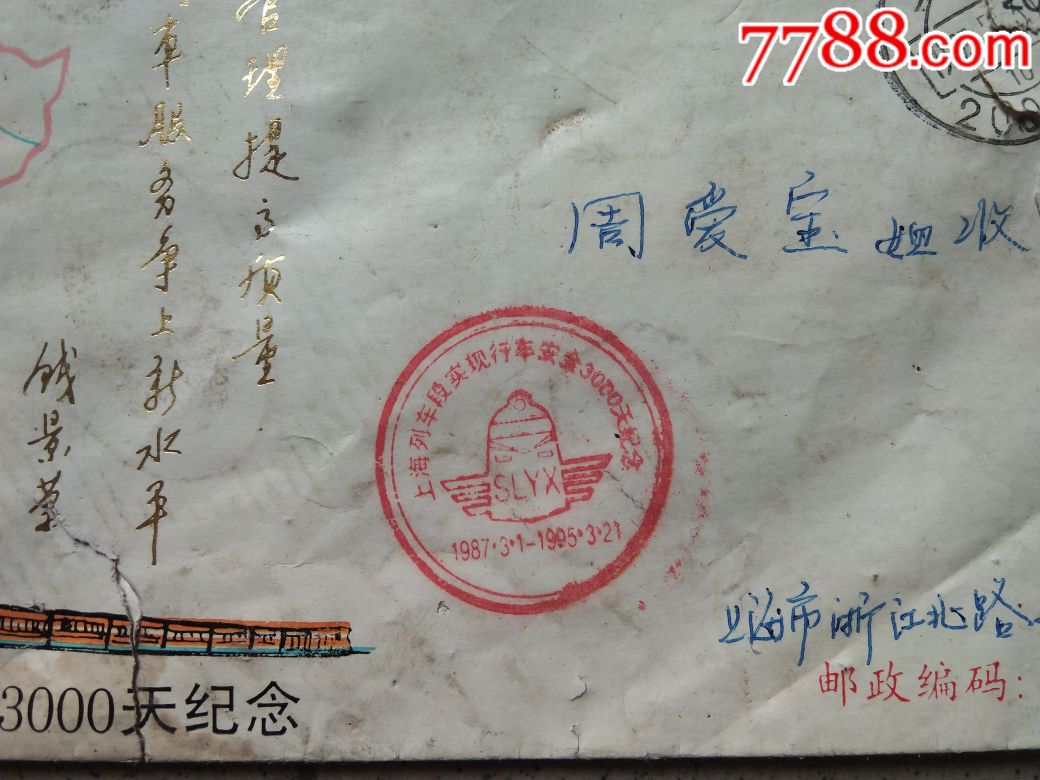 7788.com
管理提高质量
车服务争上新水平
钱景荣
周爱宝 姐收
上海列车段实现行车安全3000天纪念
SLYX
1987·3·1-1995·3·21
上海市浙江北路
邮政编码:
3000天纪念